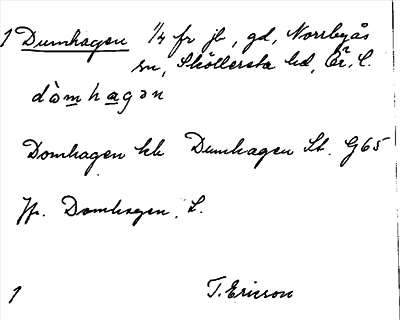 1 Dumhagen 1/4 fr jb, gd, Norrbyås
sn, Sköllersta hd, Ör. l.
dòmhagǝn
Domhagen hk Dumhagen St. G65
Jfr. Domhagen, L.
1 T. Ericson